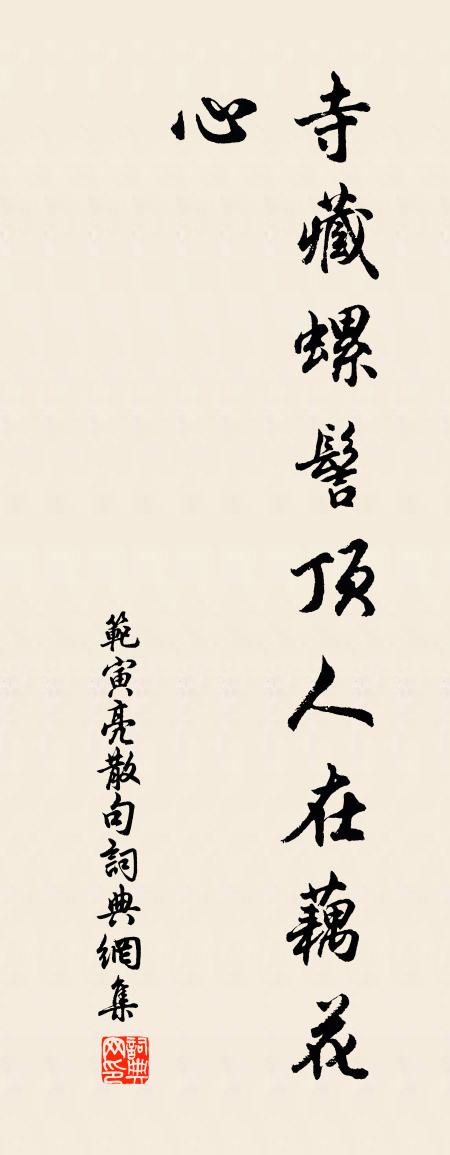 寺藏螺髻顶人在藕花
心
範寅亮散句詞典網集
詞典网印